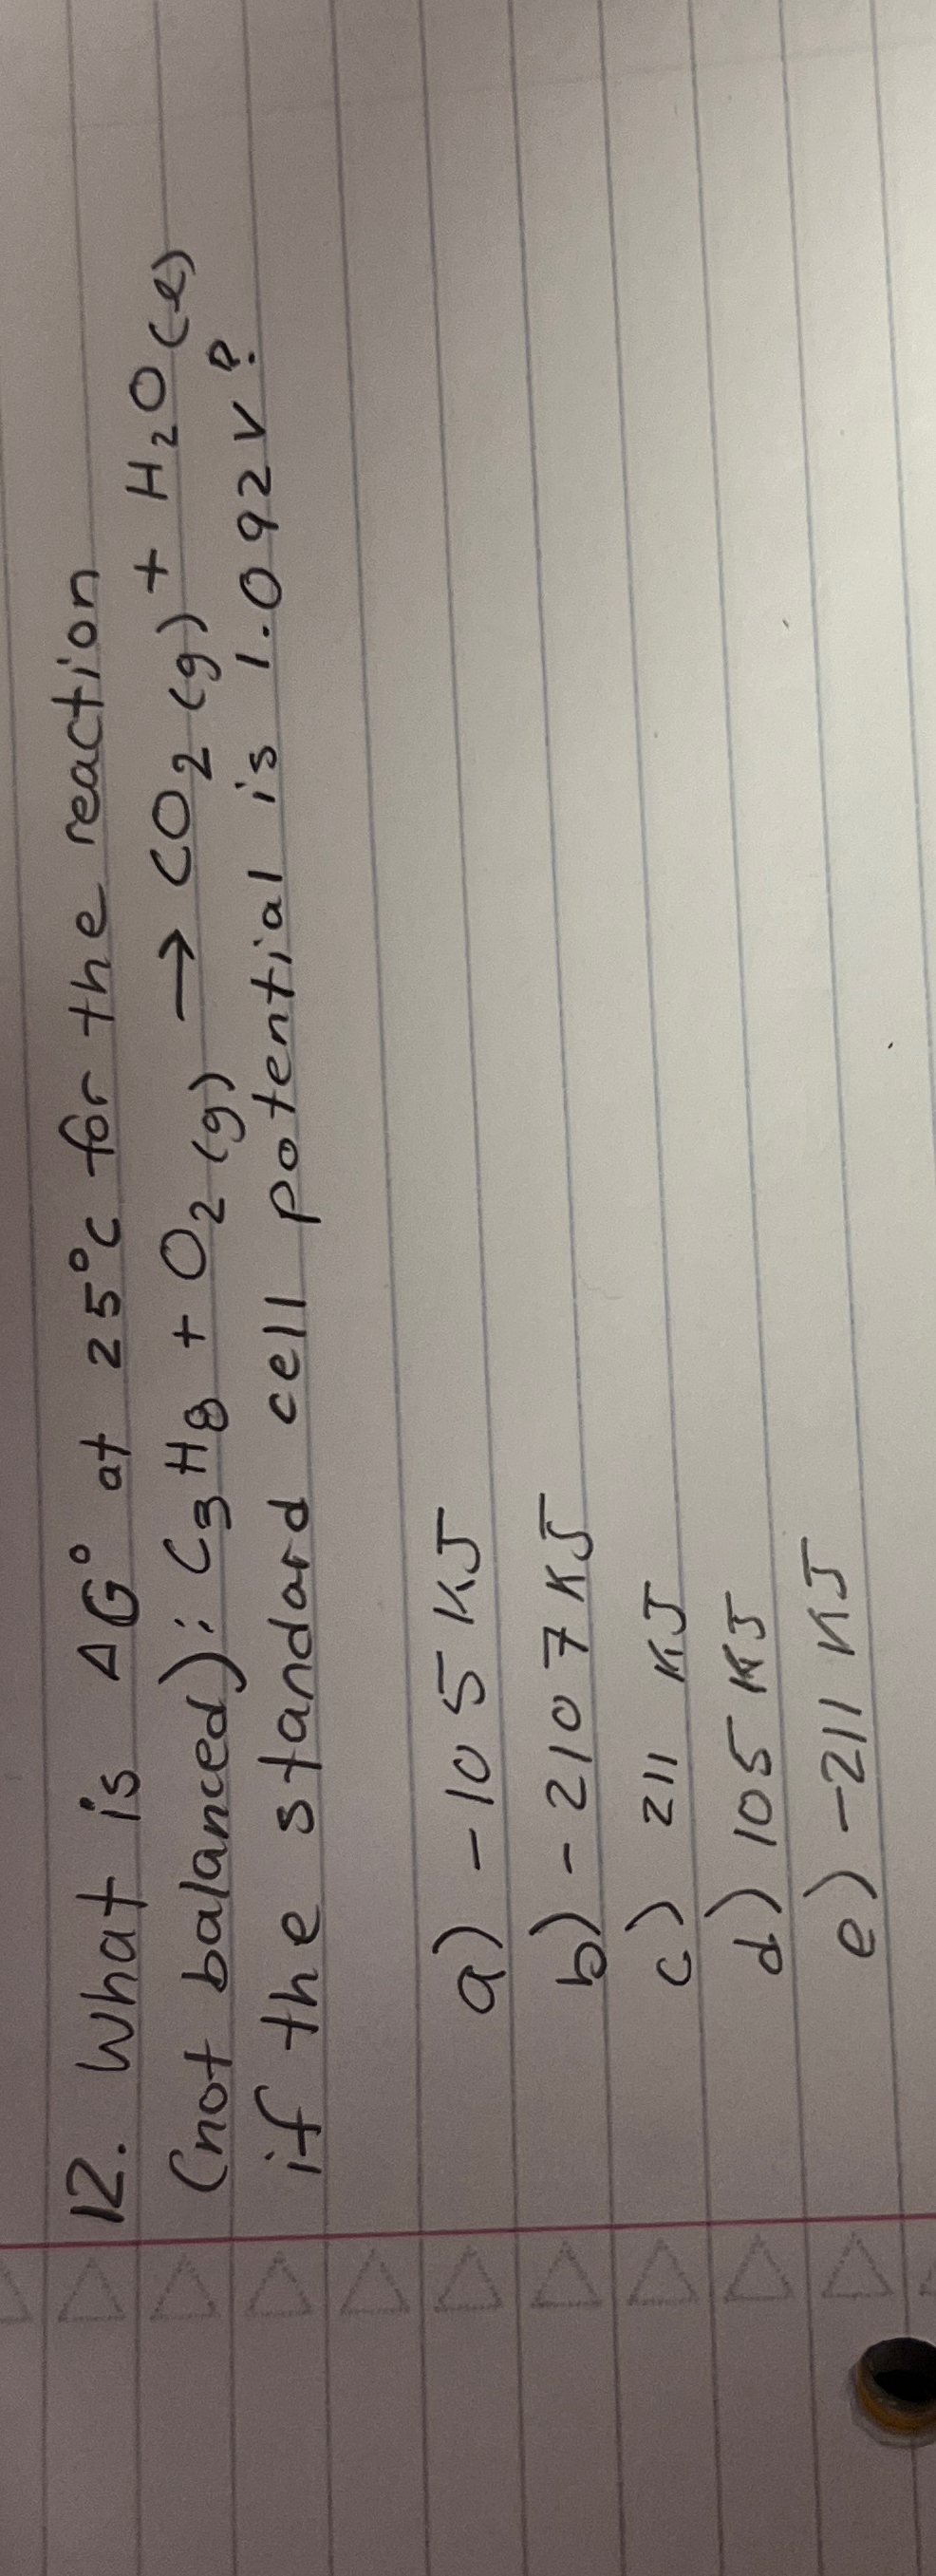 12. What is ΔG° at 25°C for the reaction
(not balanced): C₃H₈ + O₂(g) → CO₂(g) + H₂O(l)
if the standard cell potential is 1.092V?
a) -105 KJ
b) -2107 KJ
c) 211 KJ
d) 105 KJ
e) -211 KJ